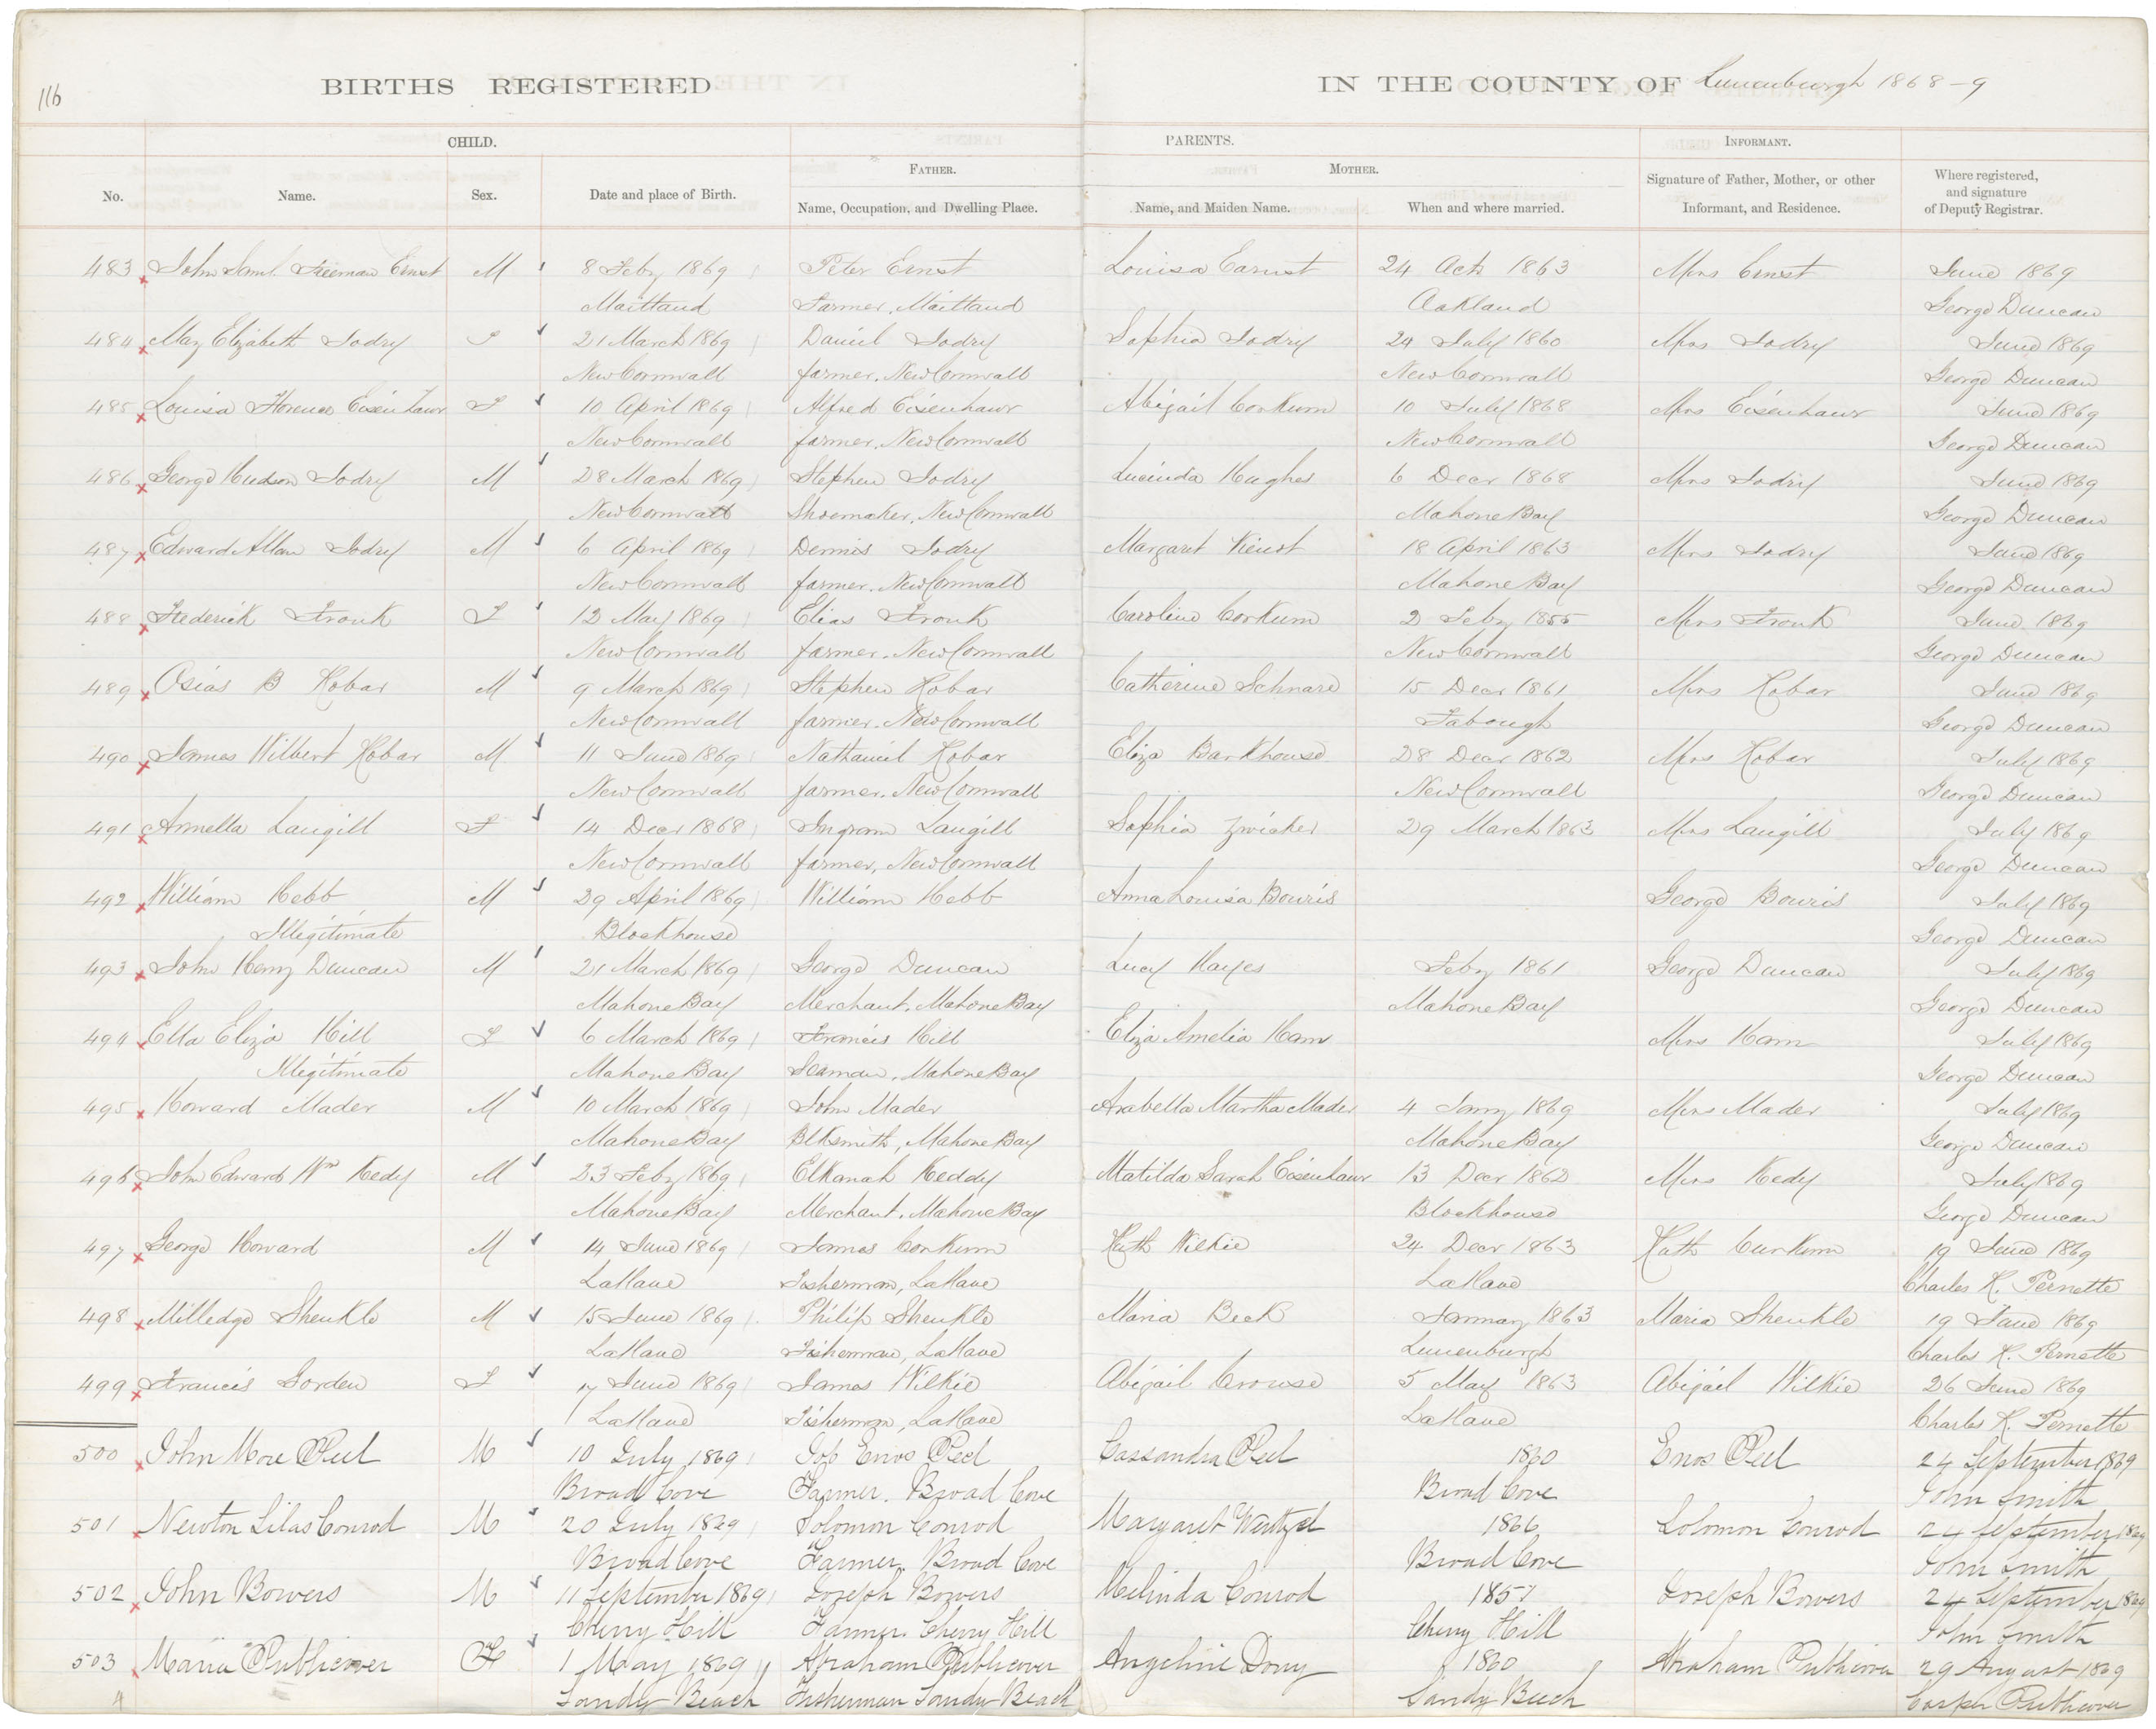 116
BIRTHS REGISTERED IN THE COUNTY OF Lunenburgh 1868-9
CHILD. PARENTS. INFORMANT.
FATHER. MOTHER.
No. Name. Sex. Date and place of Birth. Name, Occupation, and Dwelling Place. Name, and Maiden Name. When and where married. Signature of Father, Mother, or other Informant, and Residence. Where registered, and signature of Deputy Registrar.
483 John Saml. Freeman Ernst M 8 Feby 1869 Peter Ernst Louisa Earnst 24 Octr 1863 Mrs Ernst June 1869
Maitland Farmer, Maitland Oakland George Duncan
484 May Elizabeth Jodry F 21 March 1869 Daniel Jodry Sophia Jodry 24 July 1860 Mrs Jodry June 1869
New Cornwall farmer, New Cornwall New Cornwall George Duncan
485 Louisa Florence Eisenhaur F 10 April 1869 Alfred Eisenhaur Abigail Corkum 10 July 1868 Mrs Eisenhaur June 1869
New Cornwall farmer, New Cornwall New Cornwall George Duncan
486 George Hudson Jodry M 28 March 1869 Stephen Jodry Lucinda Hughes 6 Decr 1868 Mrs Jodry June 1869
New Cornwall Shoemaker, New Cornwall Mahone Bay George Duncan
487 Edward Allan Jodry M 6 April 1869 Dennis Jodry Margaret Vienot 18 April 1863 Mrs Jodry June 1869
New Cornwall farmer, New Cornwall Mahone Bay George Duncan
488 Frederick Fronk F 12 May 1869 Elias Fronk Caroline Corkum 2 Feby 1855 Mrs Fronk June 1869
New Cornwall farmer, New Cornwall New Cornwall George Duncan
489 Osias B Hobar M 9 March 1869 Stephen Hobar Catherine Schnare 15 Decr 1861 Mrs Hobar June 1869
New Cornwall farmer, New Cornwall George Duncan
490 James Wilbert Hobar M 11 June 1869 Nathaniel Hobar Eliza Barkhouse 28 Decr 1862 Mrs Hobar July 1869
New Cornwall farmer, New Cornwall New Cornwall George Duncan
491 Armella Langill F 14 Decr 1868 Ingram Langill Sophia Zwicker 29 March 1863 Mrs Langill July 1869
New Cornwall farmer, New Cornwall George Duncan
492 William Hebb M 29 April 1869 William Hebb Anna Louisa Bouris George Bouris July 1869
Illegitimate Blockhouse George Duncan
493 John Henry Duncan M 21 March 1869 George Duncan Lucy Hayes Feby 1861 George Duncan July 1869
Mahone Bay Merchant, Mahone Bay Mahone Bay George Duncan
494 Ella Eliza Hill F 6 March 1869 Francis Hill Eliza Amelia Ham Mrs Ham July 1869
Illegitimate Mahone Bay Seaman, Mahone Bay George Duncan
495 Howard Mader M 10 March 1869 John Mader Arabella Martha Mader 4 Jany 1869 Mrs Mader July 1869
Mahone Bay Blksmith, Mahone Bay Mahone Bay George Duncan
496 John Edward Wm Kedy M 23 Feby 1869 Elkanah Keddy Matilda Sarah Eisenhaur 13 Decr 1862 Mrs Kedy July 1869
Mahone Bay Merchant, Mahone Bay Blockhouse George Duncan
497 George Howard M 14 June 1869 James Corkum Kath Wilkie 24 Decr 1863 Kath Curkum 19 June 1869
LaHave Fisherman, LaHave LaHave Charles H. Pernette
498 Milledge Shenkle M 15 June 1869 Philip Shenkle Maria Beck January 1863 Maria Shenkle 19 June 1869
LaHave Fisherman, LaHave Lunenburgh Charles H. Pernette
499 Francis Gorden F 17 June 1869 James Wilkie Abigail Crouse 5 May 1863 Abigail Wilkie 26 June 1869
LaHave Fisherman, LaHave LaHave Charles H. Pernette
500 John More Peel M 10 July 1869 Job Enos Peel Cassandra Peel 1860 Enos Peel 24 September 1869
Broad Cove Farmer. Broad Cove Broad Cove John Smith
501 Newton Silas Conrod M 20 July 1869 Solomon Conrod Margaret Wentzel 1866 Solomon Conrod 24 September 1869
Broad Cove Farmer. Broad Cove Broad Cove John Smith
502 John Bowers M 11 September 1869 Joseph Bowers Melinda Conrod 1857 Joseph Bowers 24 September 1869
Cherry Hill Farmer. Cherry Hill Cherry Hill John Smith
503 Maria Publicover F 1 May 1869 Abraham Publicover Angeline Dory 1860 Abraham Publicover 29 August 1869
4 Sandy Beach Fisherman Sandy Beach Sandy Beach Casper Publicover